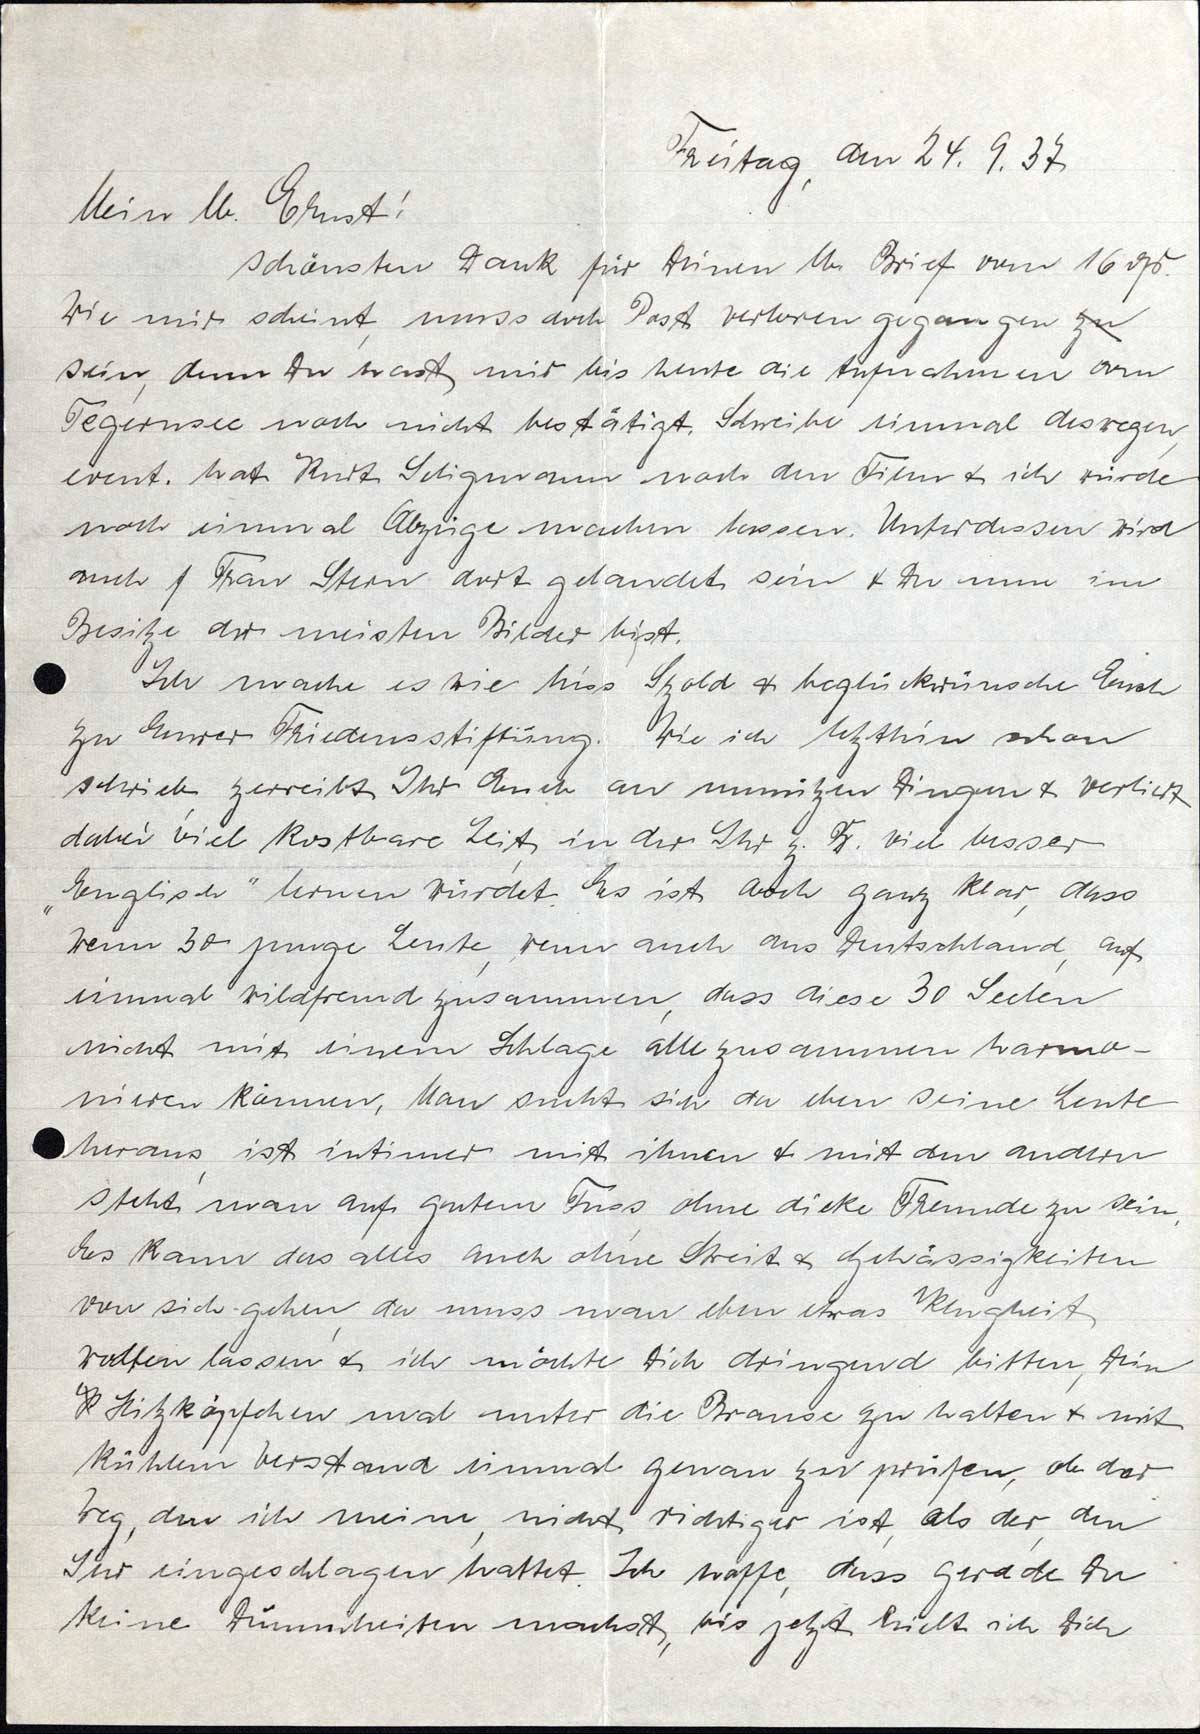 Freitag, den 24. 9. 37
Mein lb. Ernst!
schönsten Dank für Deinen lb. Brief vom 16 ds.
Wie mir scheint, muss doch Post verloren gegangen
sein, denn Du hast mir bis heute die Aufnahmen vom
Tegernsee noch nicht bestätigt. Schreibe einmal deswegen,
event. hat Kurt Seligmann noch den Film & ich würde
noch einmal Abzüge machen lassen. Unterdessen wird
auch Frau Stern dort gelandet sein & Du nun im
Besitze der meisten Bilder bist.
Ich mache es wie Miss Szold & beglückwünsche Euch
zu Eurer Friedensstiftung. Wie ich letzthin schon
schrieb, zerreibt Ihr Euch an unnützen Dingen & verliert
dabei viel kostbare Zeit, in der Ihr z. B. viel besser
„Englisch" lernen würdet. Es ist doch ganz klar, dass
wenn 30 junge Leute, wenn auch aus Deutschland, auf
einmal wildfremd zusammen, dass diese 30 Seelen
nicht mit einem Schlage alle zusammen harmo-
nieren können. Man sucht sich da eben seine Leute
heraus, ist intimer mit ihnen & mit den andern
steht man auf gutem Fuss, ohne dicke Freunde zu sein.
Es kann das alles auch ohne Streit & Gehässigkeiten
von sich gehen, da muss man eben etwas Klugheit
walten lassen & ich möchte Dich dringend bitten, Dein
Hitzköpfchen mal unter die Brause zu halten & mit
kühlem Verstand einmal genau zu prüfen, ob der
Weg, den ich meine, nicht richtiger ist, als der, den
Ihr eingeschlagen hattet. Ich hoffe, dass gerade Du
keine Dummheiten machst, bis jetzt hielt ich Dich